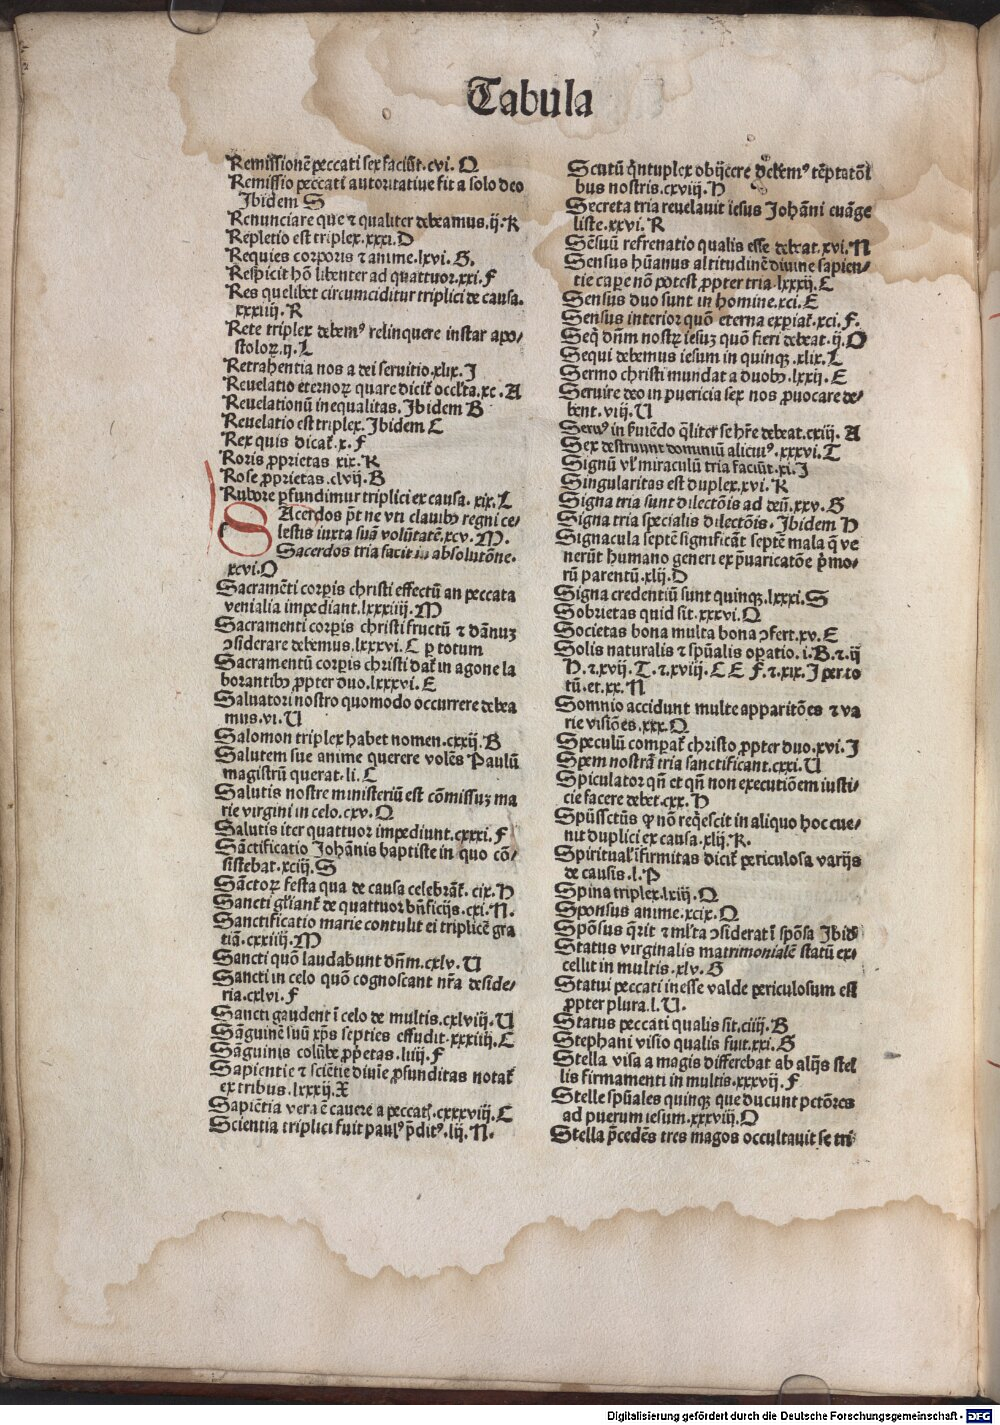 Tabula
Remissionē peccati sex faciūt.cvi.Q
Remissio peccati autoritative fit a solo deo
Ibidem S
Renunciare que ⁊ qualiter debeamus.ij.K
Repletio est triplex.xxxi.D
Requies corporis ⁊ anime.lxvi.G.
Respicit hō libenter ad quattuor.xxi.F
Res quelibet circumciditur triplici de causa.
xxxiiij.R
Rete triplex debemꝰ relinquere instar apo⸗
stoloꝝ.ij.L
Retrahentia nos a dei seruitio.xlix.I
Reuelatio eternoꝝ quare dicit̄ occl̄ta.xc.A
Reuelationū inequalitas.Ibidem B
Reuelatio est triplex.Ibidem C
Rex quis dicat̄.x.F
Roris ꝓprietas xix.K
Rose ꝓprietas.clvij.B
Rubore ꝑfundimur triplici ex causa.xix.L
SAcerdos pn̄t ne vti clauibꝫ regni ce⸗
lestis iuxta suā volūtatē.xcv.M.
Sacerdos tria facit in absolutōne.
xcvi.O
Sacramēti corꝑis christi effectū an peccata
venialia impediant.lxxxiiij.M
Sacramenti corꝑis christi fructū ⁊ dānuꝫ
ꝯsiderare debemus.lxxxvi.C ꝑ totum
Sacramentū corꝑis christi dat̄ in agone la
borantibꝫ ꝓpter duo.lxxxvi.E
Saluatori nostro quomodo occurrere debea
mus.vi.U
Salomon triplex habet nomen.cxxij.B
Salutem sue anime querere volēs Paulū
magistrū querat.li.C
Salutis nostre ministeriū est cōmissuꝫ ma
rie virgini in celo.cxv.Q
Salutis iter quattuor impediunt.cxxxi.F
Sāctificatio Iohānis baptiste in quo cō⸗
sistebat.xciij.S
Sāctoꝝ festa qua de causa celebrāt̄.cix.H
Sancti gl̄iant̄ de quattuor bn̄ficijs.cxi.N.
Sanctificatio marie contulit ei triplicē gra
tiā.cxxiiij.M
Sancti quō laudabunt dn̄m.cxlv.U
Sancti in celo quō cognoscant nr̄a deside⸗
ria.cxlvi.F
Sancti gaudent ī celo de multis.cxlviij.U
Sāguinē suū xp̄s septies effudit.xxxiiij.C
Sāguinis colūbe ꝓp̄etas.liiij.F
Sapientie ⁊ sciētie diuīe ꝓfunditas notat̄
ex tribus.lxxxij.X
Sapiētia vera ē cauere a peccat̄.cxxxviij.C
Scientia triplici fuit paulꝰ p̄ditꝰ.lij.N.
Scutū qn̄tuplex obijcere debemꝰ tēptatōi
bus nostris.cxviij.H
Secreta tria reuelauit iesus Iohāni euāge
liste.xxvi.R
Sēsuū refrenatio qualis esse debeat.xvi.N
Sensus hūanus altitudinē diuine sapien⸗
tie caꝑe nō potest ꝓpter tria.lxxxij.C
Sensus duo sunt in homine.xci.E
Sensus interior quō eterna expiat̄.xci.F.
Seq̄ dn̄m nostꝝ iesuꝫ quō fieri debeat.ij.O
Sequi debemus iesum in quinqꝫ.xlix.L
Sermo christi mundat a duobꝫ.lxxij.E
Seruire deo in puericia sex nos ꝓuocare de⸗
bent.viij.U
Seruꝰ in ẜuiēdo q̄liter se hr̄e debeat.cxiij.A
Sex destruunt dominiū alicuiꝰ.xxxvi.T
Signū vl̓ miraculū tria faciūt.xi.I
Singularitas est duplex.xvi.K
Signa tria sunt dilectōis ad deū.xxv.G
Signa tria specialis dilectōis.Ibidem H
Signacula septē significāt septē mala q̄ ve
nerūt humano generi ex p̄uaricatōe p̄mo⸗
rū parentū.xlij.D
Signa credentiū sunt quinqꝫ.lxxxi.S
Sobrietas quid sit.xxxvi.Q
Societas bona multa bona ꝯfert.xv.E
Solis naturalis ⁊ sp̄ualis oꝑatio.i.B.⁊.ij
H.⁊.xvij.T.⁊.xviij.C E F.⁊.xix.I per to
tū.et.xx.N
Somnio accidunt multe apparitōes ⁊ va
rie visiōes.xxx.Q
Speculū comꝑat̄ christo ꝓpter duo.xvi.I
Spem nostrā tria sanctificant.cxxi.U
Spiculator qn̄ et qn̄ non executiōem iusti⸗
cie facere debet.cxx.H
Spūssctūs ꝙ nō req̄escit in aliquo hoc eue⸗
nit duplici ex causa.xlij.R.
Spiritual̓ īfirmitas dicit̄ periculosa varijs
de causis.l.P
Spina triplex.lxiij.Q
Sponsus anime.xcix.Q
Spōsus q̄rit ⁊ ml̄ta ꝯsiderat ī spōsa Ibid̄
Status virginalis matrimonialē statū ex⸗
cellit in multis.xlv.G
Statui peccati inesse valde periculosum est
ꝓpter plura.l.U.
Status peccati qualis sit.ciiij.B
Stephani visio qualis fuit.xxi.G
Stella visa a magis differebat ab alijs stel
lis firmamenti in multis.xxxvij.F
Stelle sp̄uales quinqꝫ que ducunt pctōres
ad puerum iesum.xxxviij.O
Stella p̄cedēs tres magos occultauit se tri
Digitalisierung gefördert durch die Deutsche Forschungsgemeinschaft - DFG